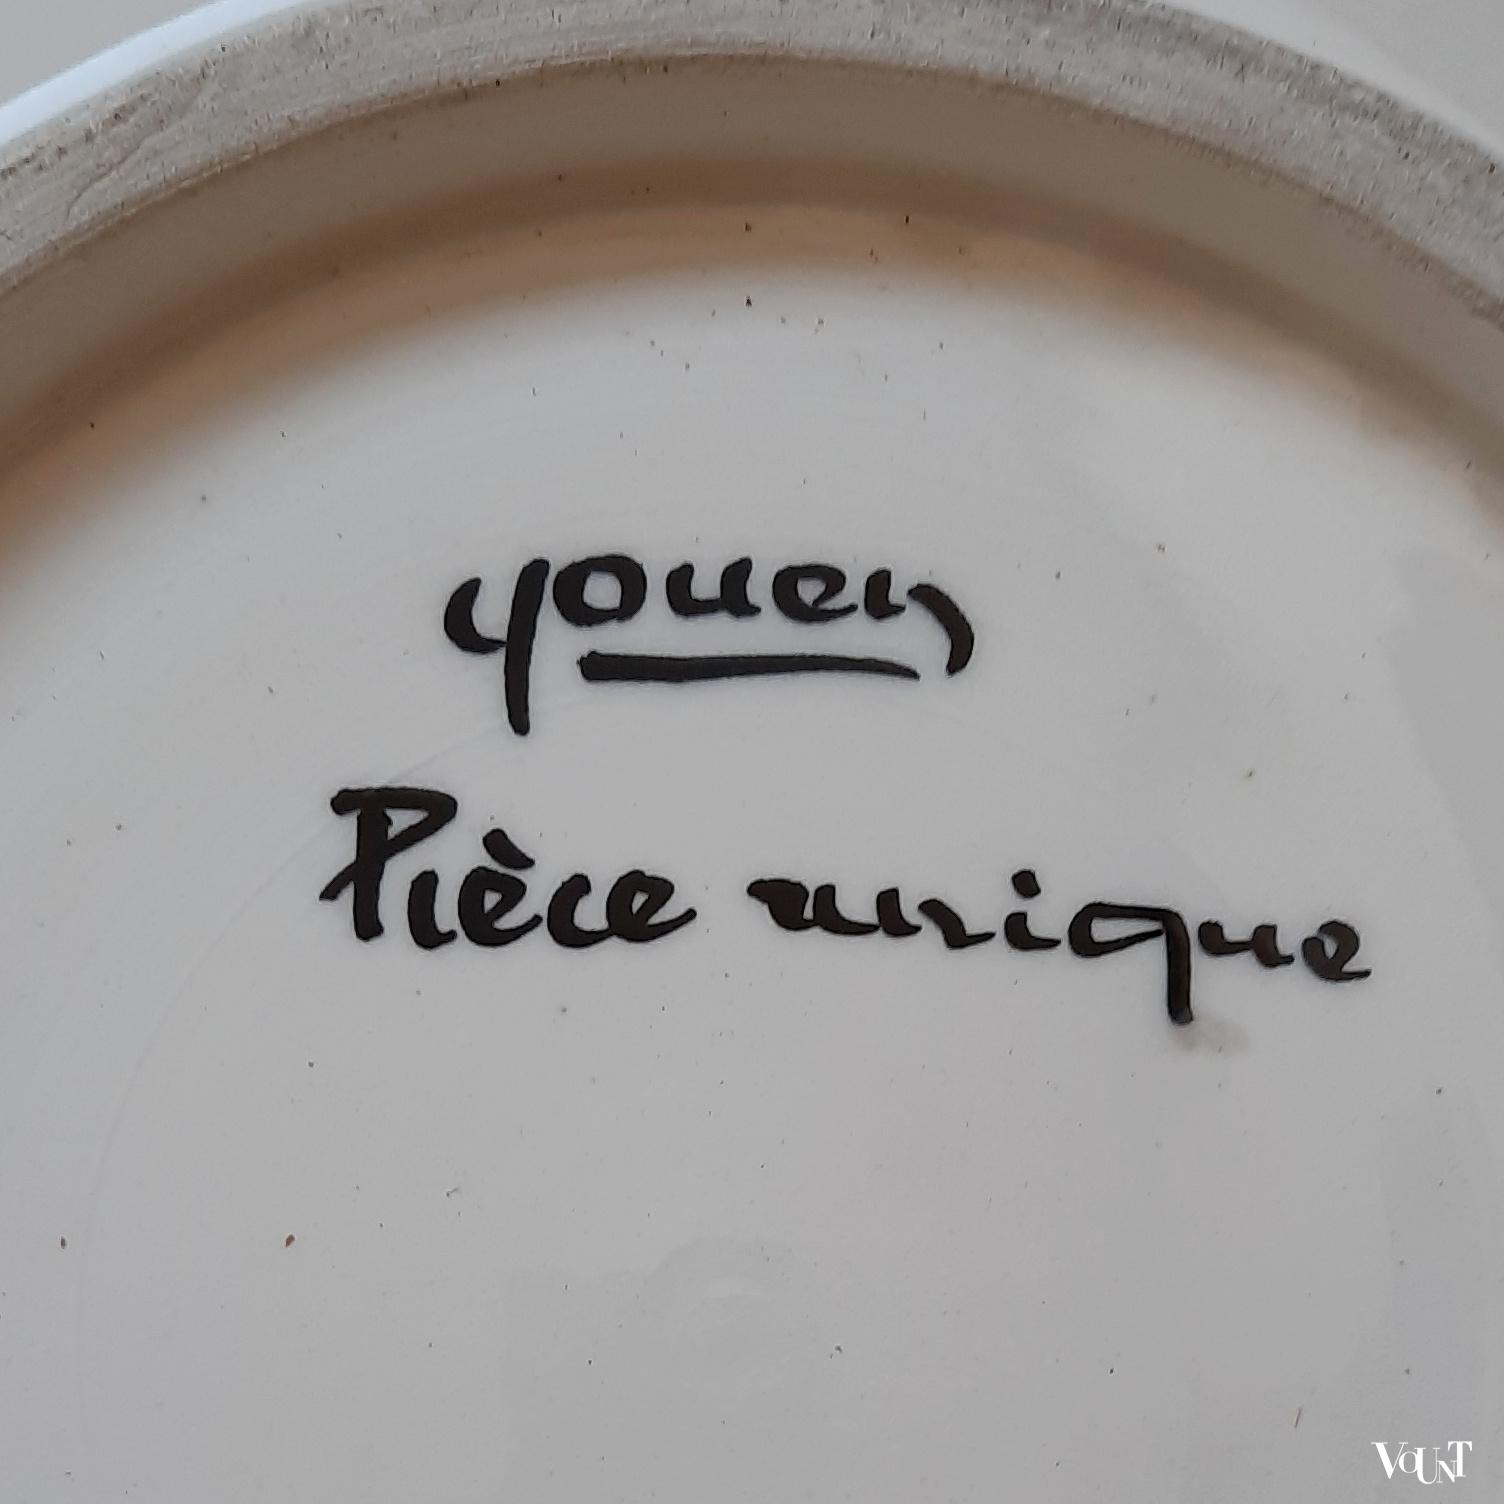 youen
Pièce unique
VOUNT